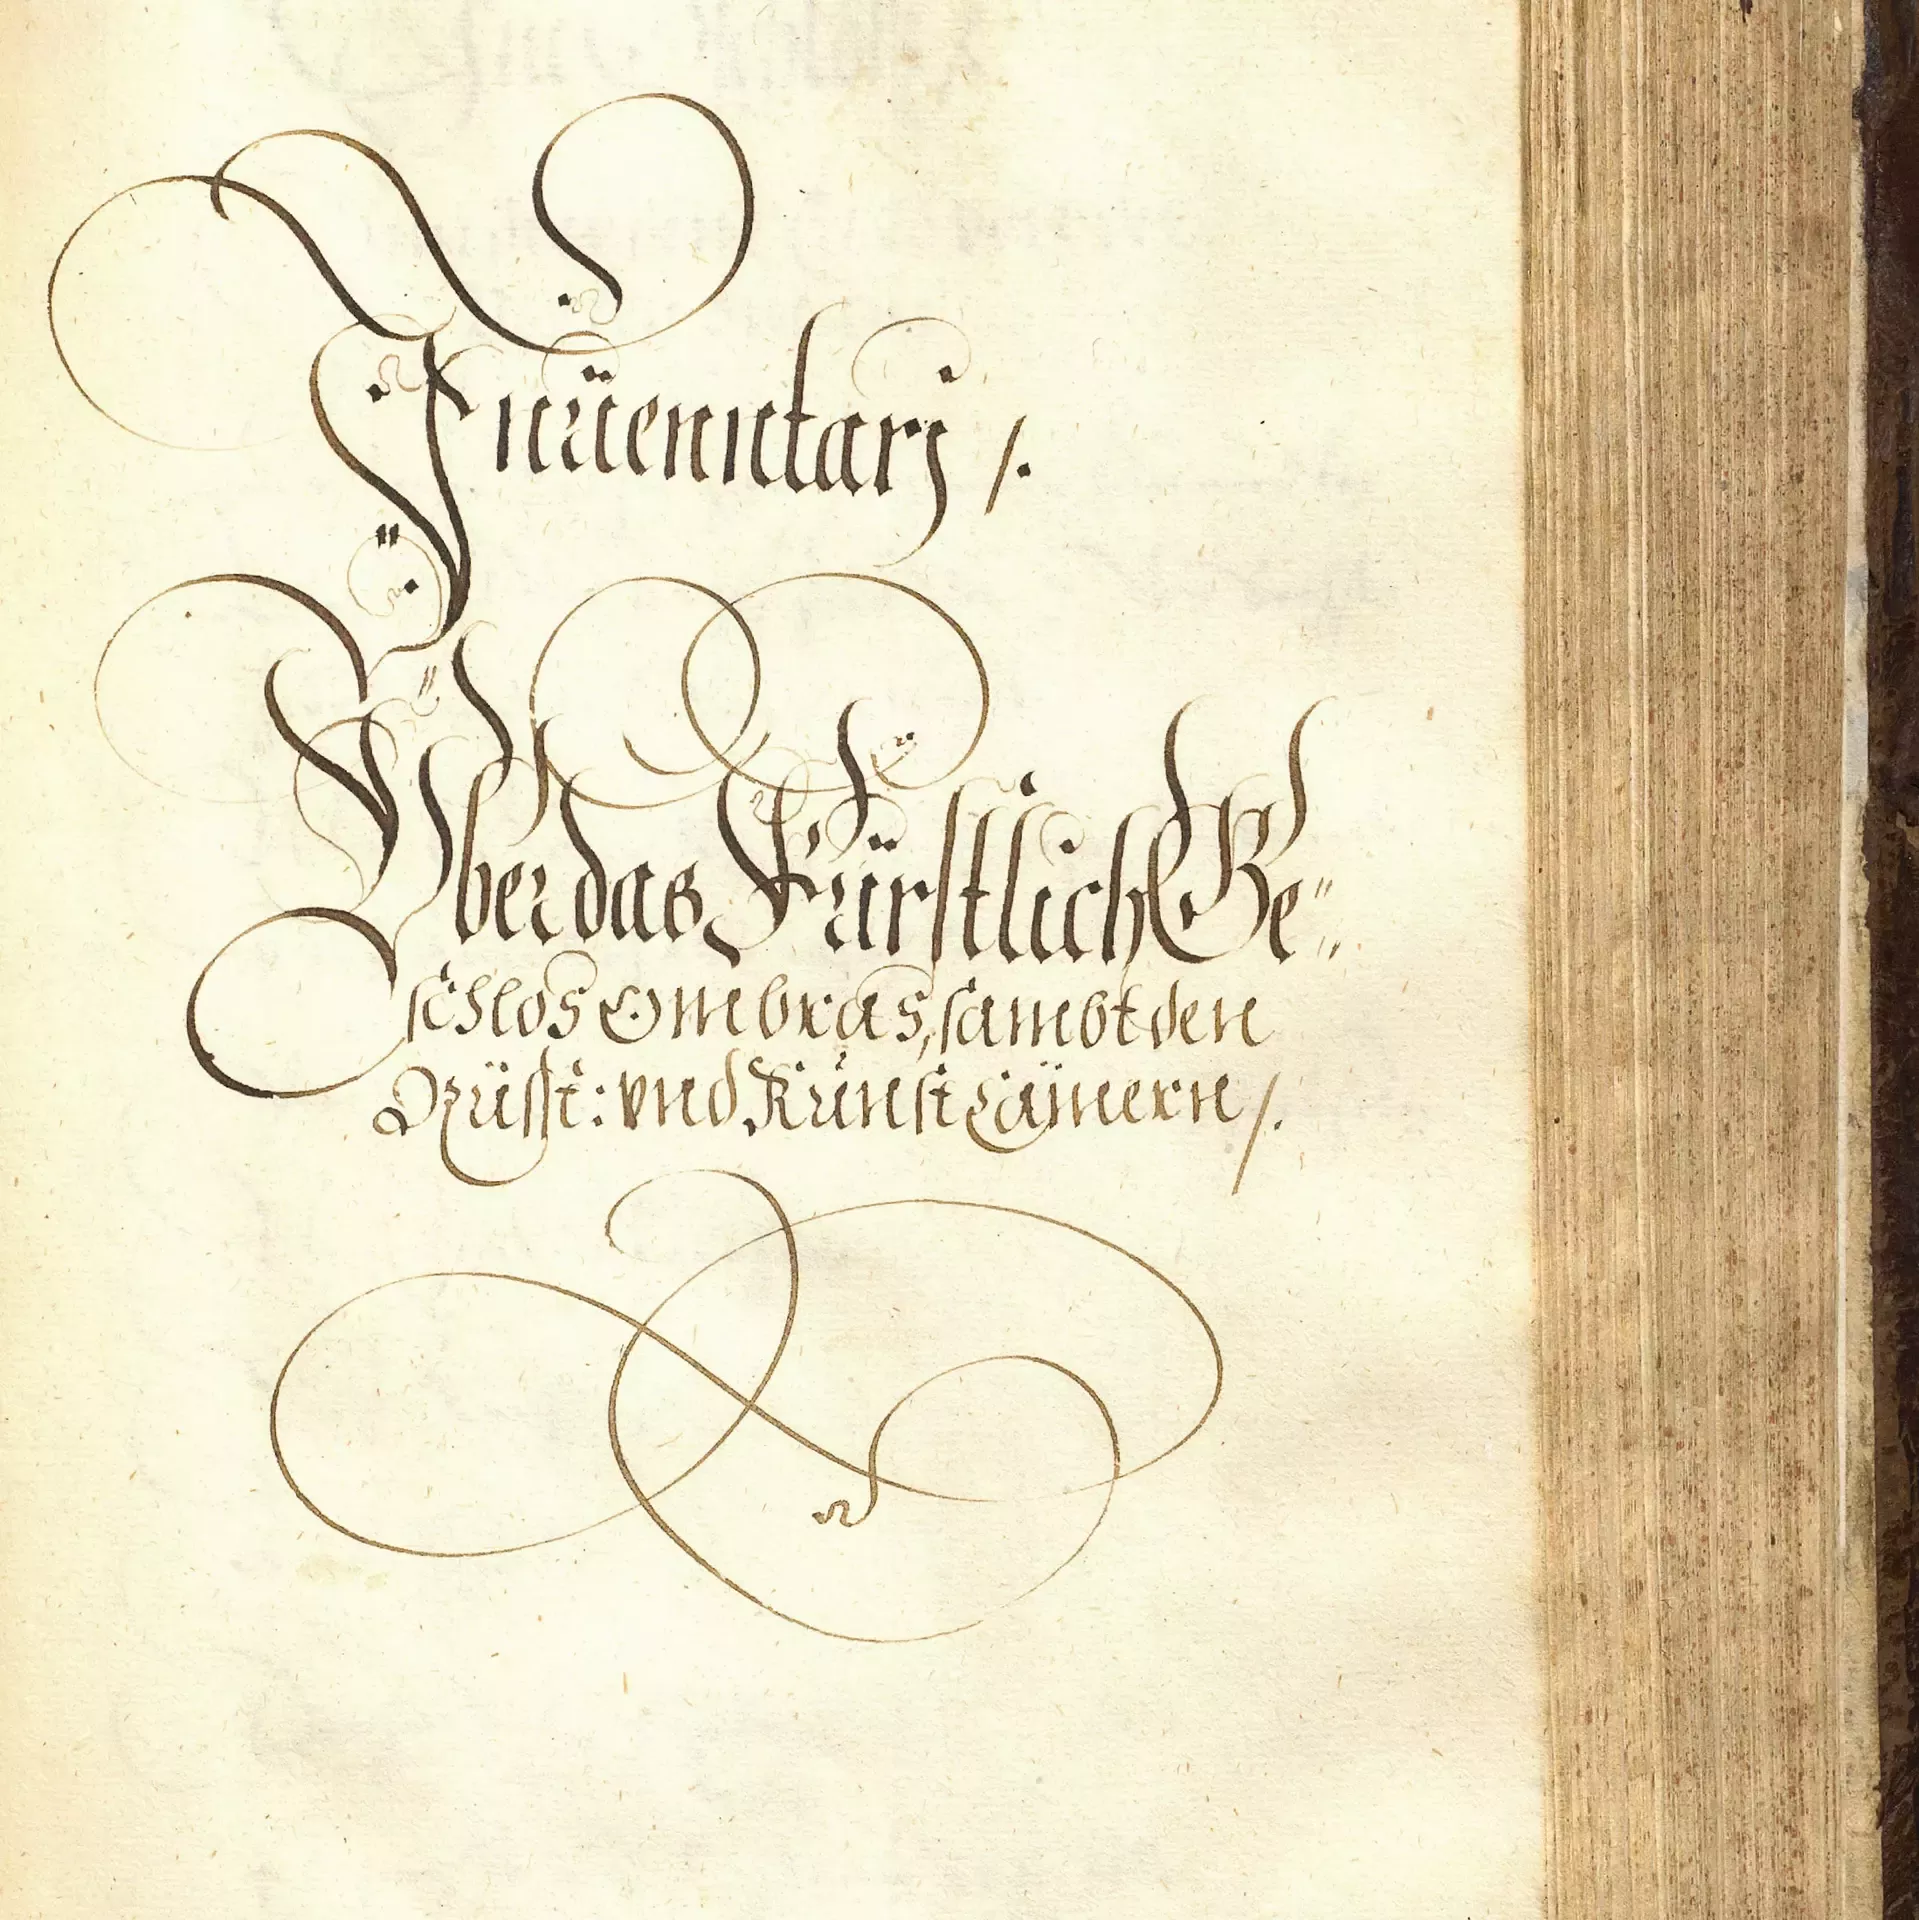 Inuenntarj /.
Vber das Fürstlich Ge=
schlos Ombras, sambt den
Rüsst: vnd Kunst Cämern /.